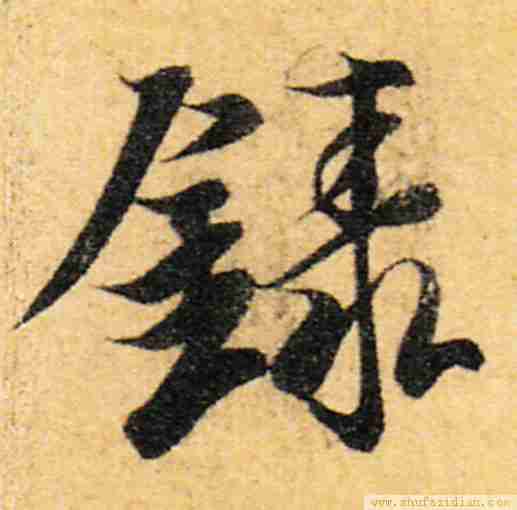 錄
www.shufazidian.com